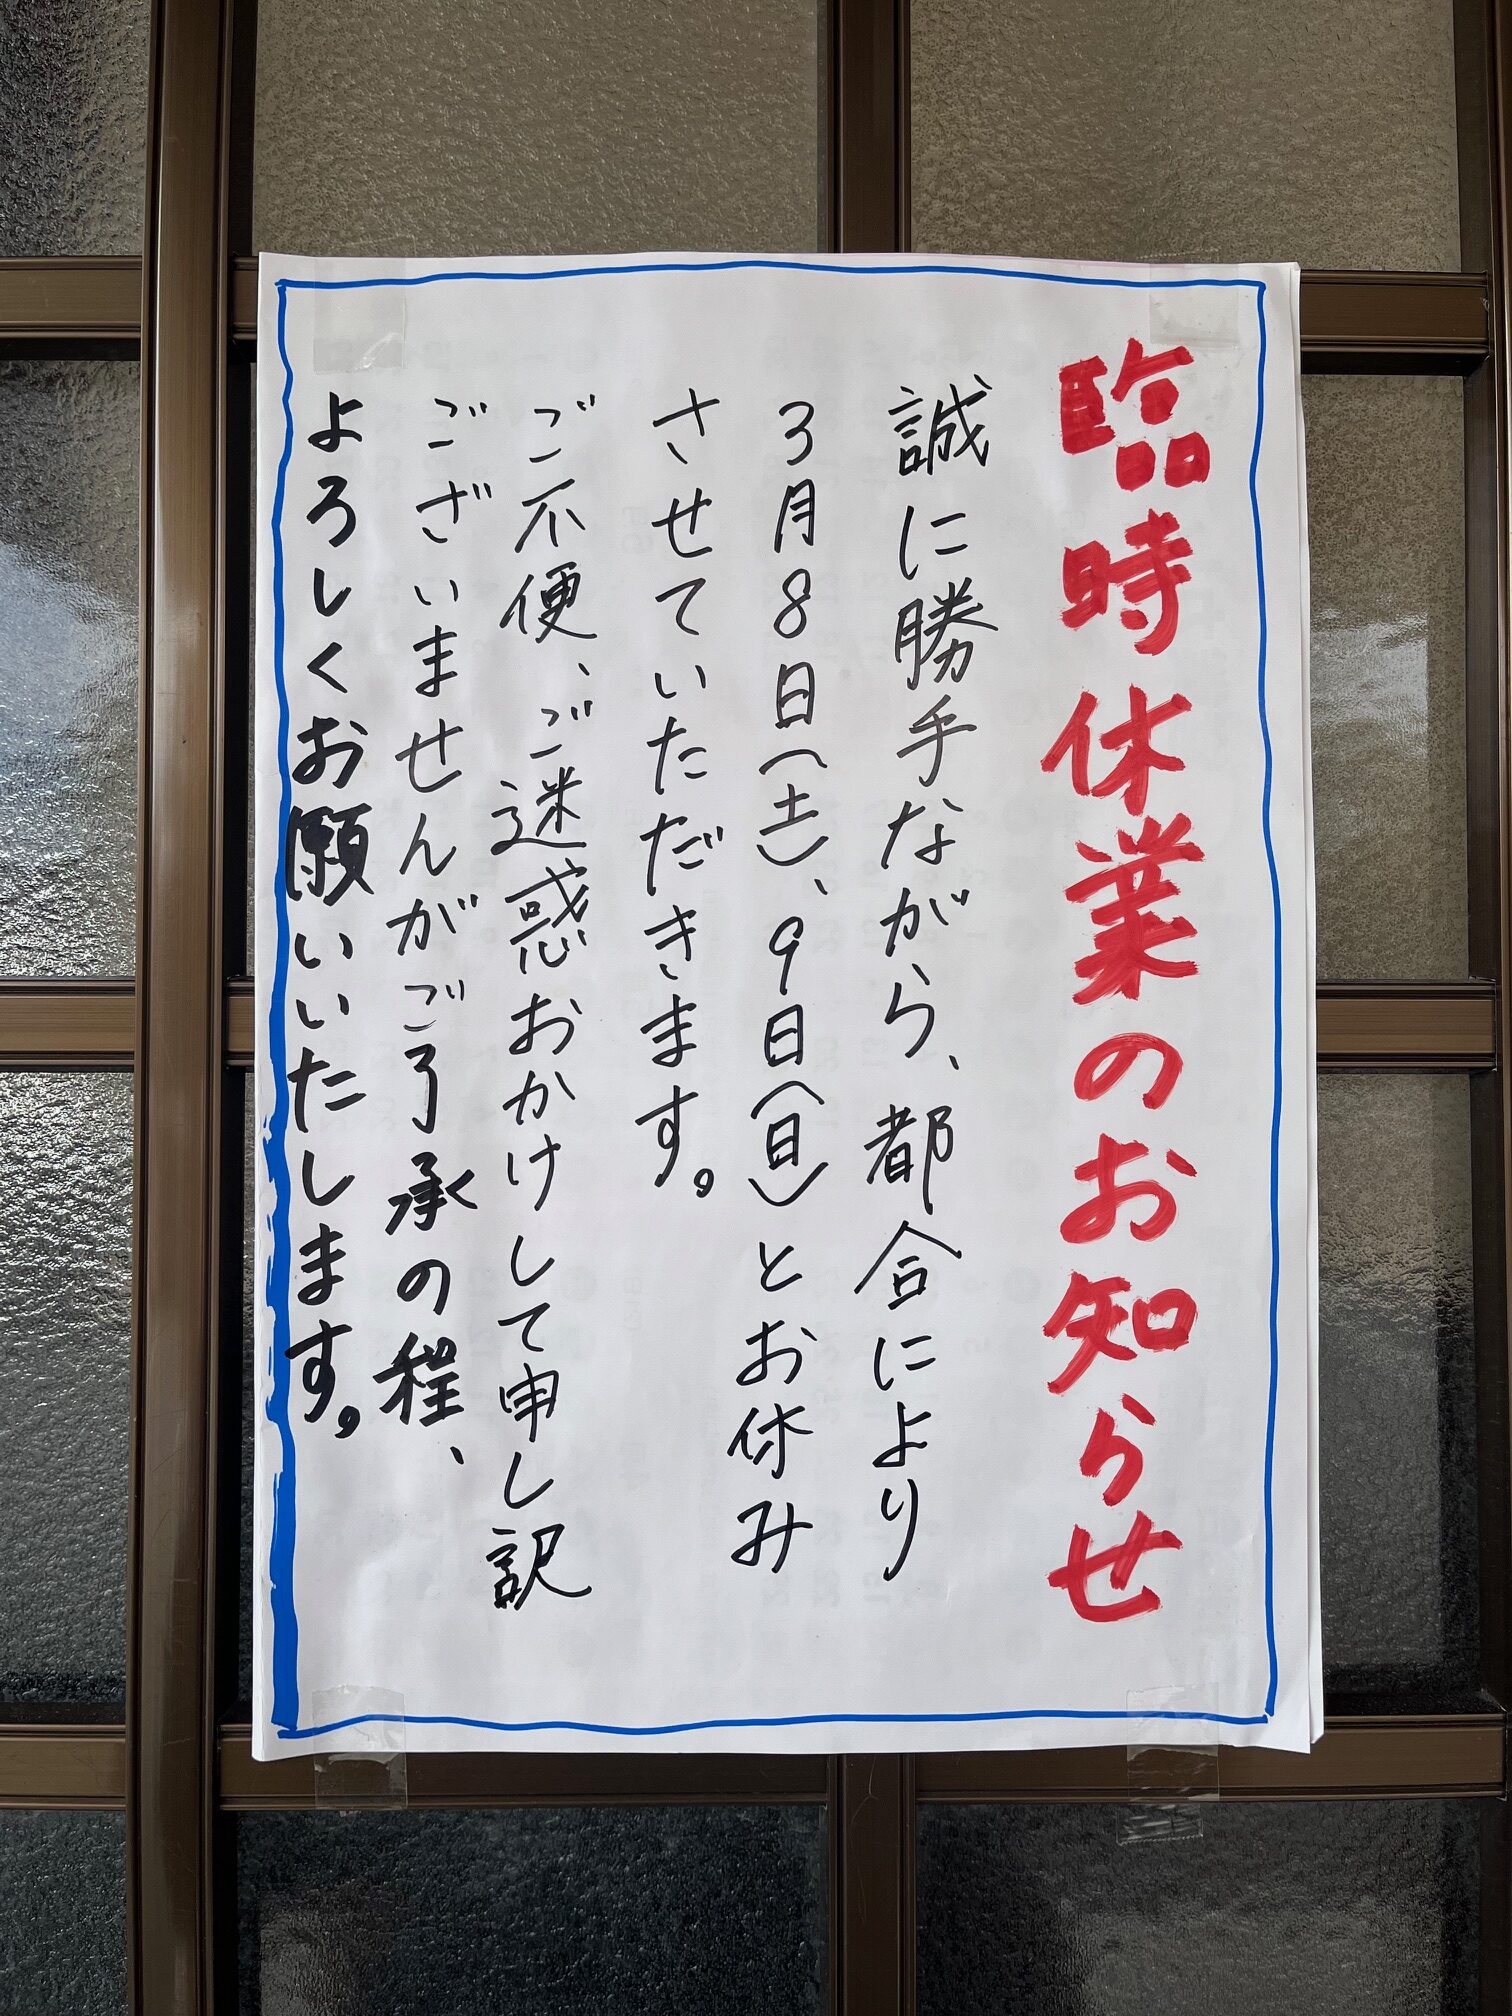 臨時休業のお知らせ
誠に勝手ながら、都合により
3月8日(土)、9日(日)とお休み
させていただきます。
ご不便、ご迷惑おかけして申し訳
ございませんがご了承の程、
よろしくお願いいたします。